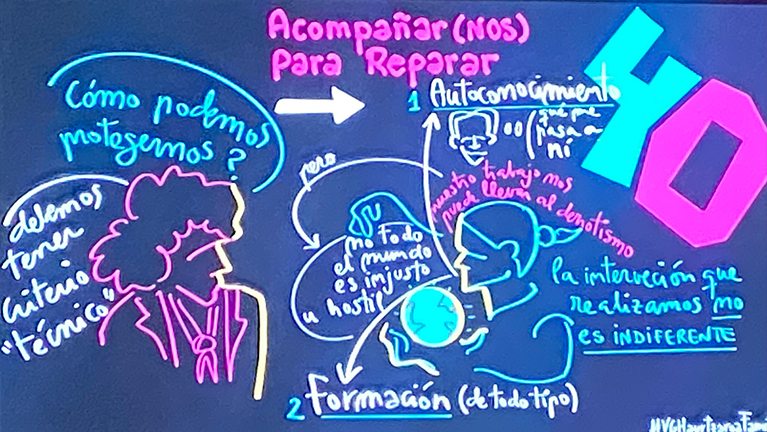 Acompañar (NOS)
Para Reparar
YO
Cómo podemos
protegernos?
debemos
tener
criterio
"técnico"
1 Autoconocimiento
qué me
pasa a
mí
pero
nuestro trabajo nos
puede llevar al derrotismo
no todo
el mundo
es injusto
u hostil
la interveción que
realizamos no
es INDIFERENTE
2 Formación (de todo tipo)